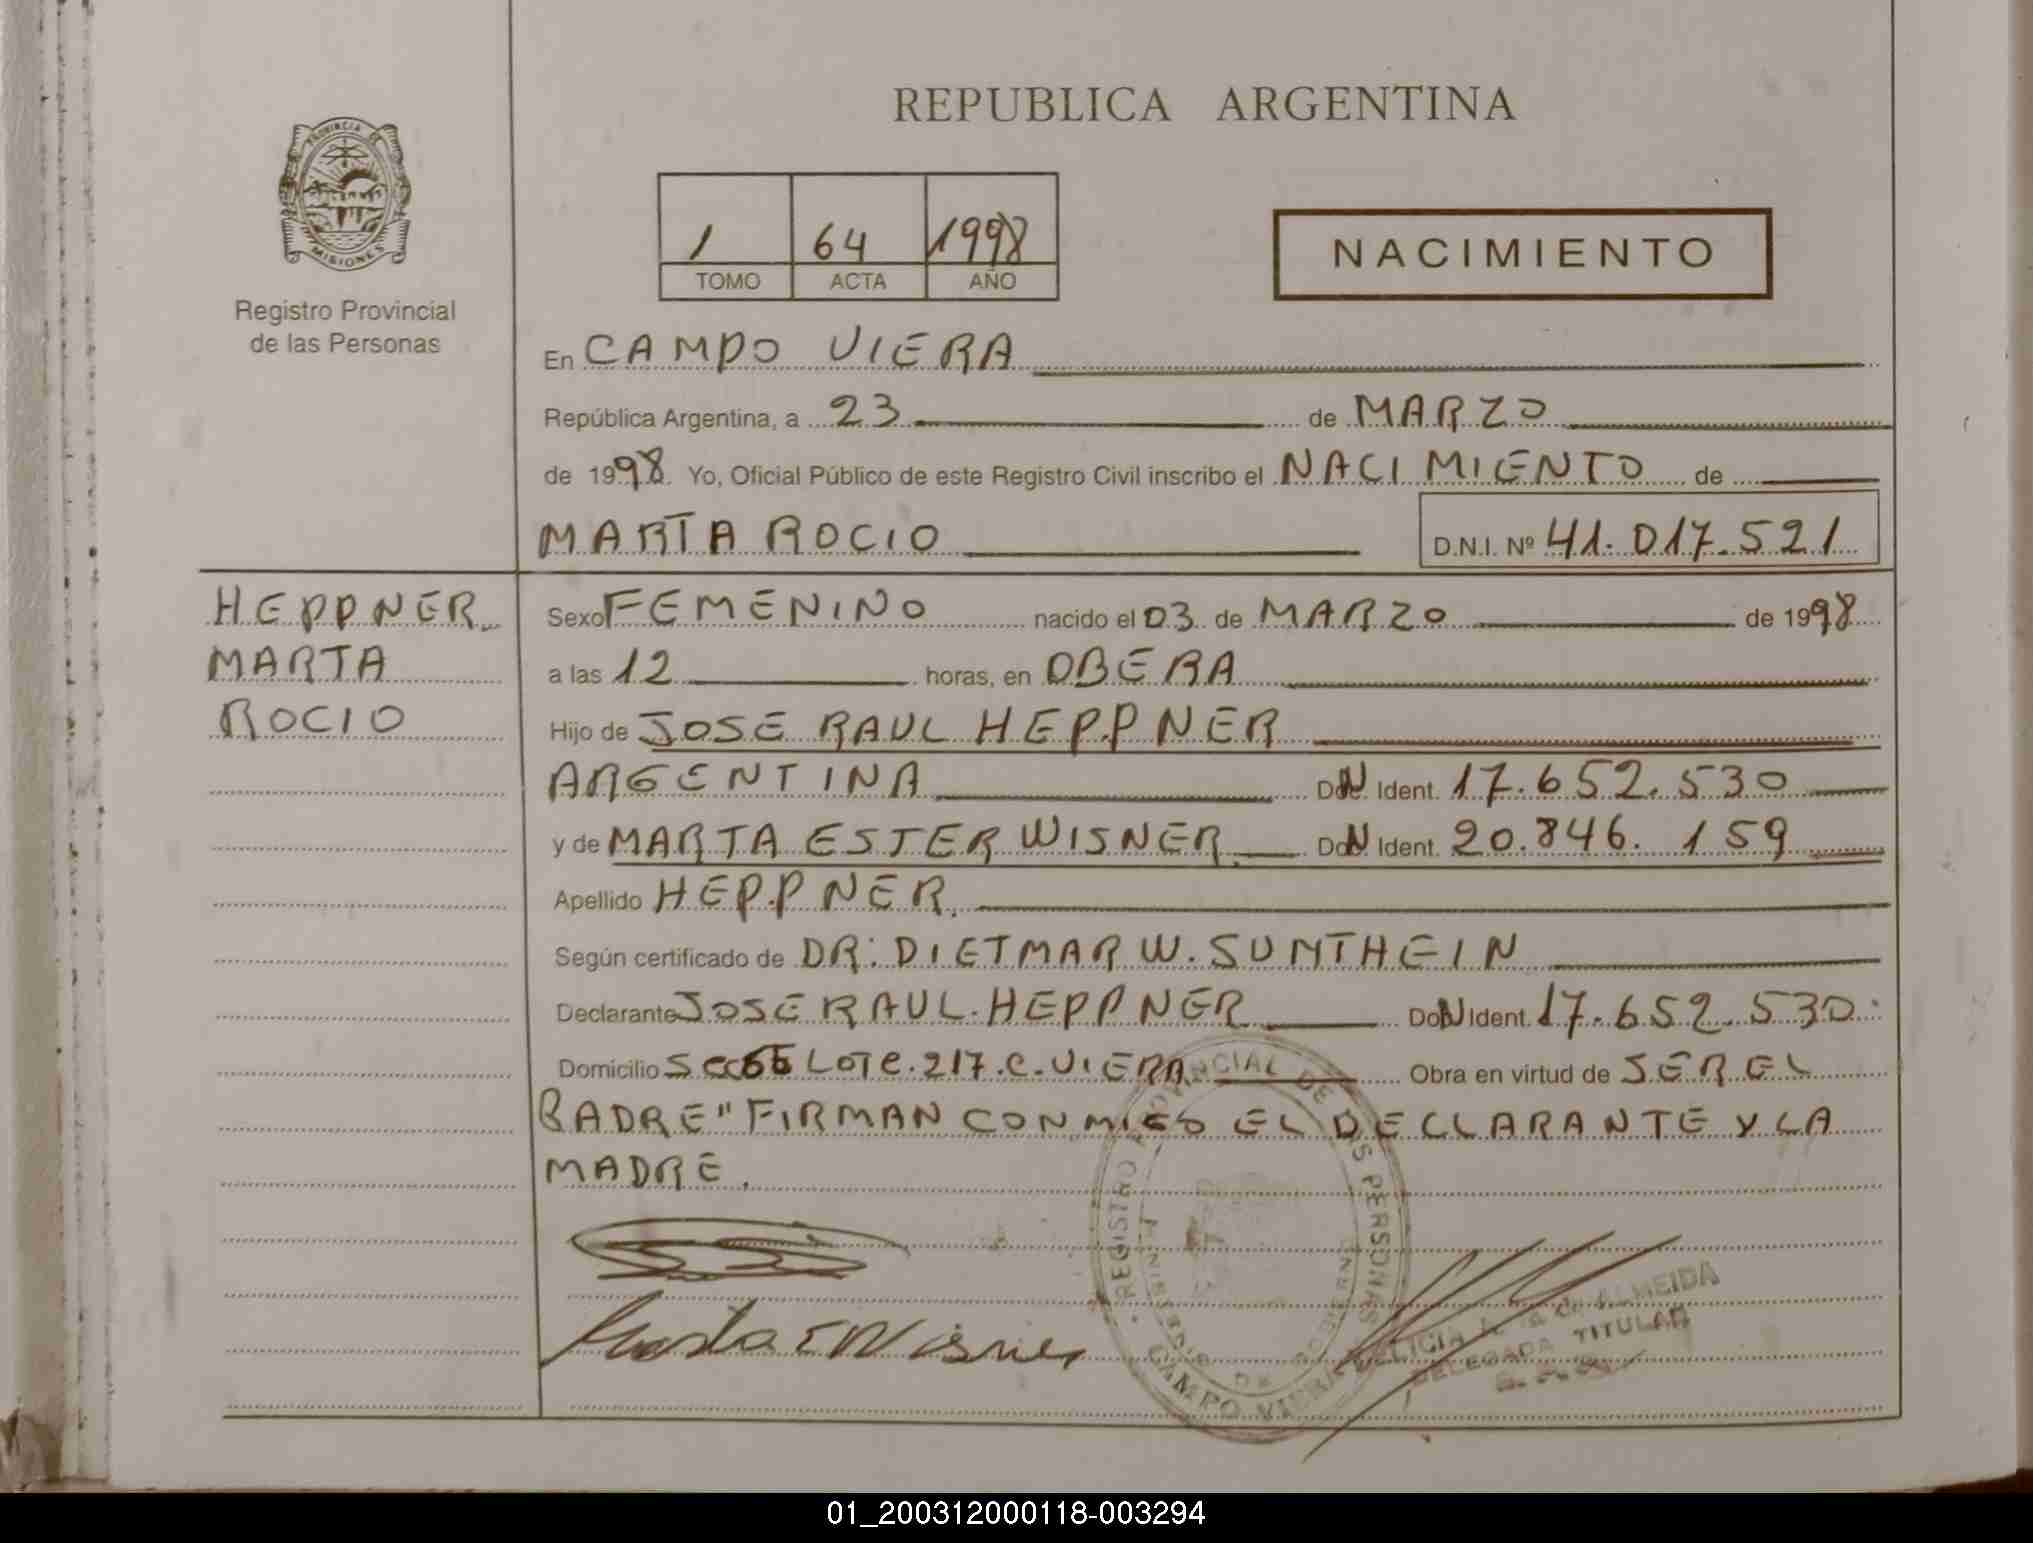 REPUBLICA ARGENTINA
PROVINCIA DE
MISIONES
Registro Provincial
de las Personas
1 64 1998
TOMO ACTA AÑO
NACIMIENTO
En CAMPO VIERA
República Argentina, a 23 de MARZO
de 1998 Yo, Oficial Público de este Registro Civil inscribo el NACIMIENTO de
MARTA ROCIO D.N.I. Nº 41.017.521
HEPPNER
MARTA
ROCIO
Sexo FEMENINO nacido el 03 de MARZO de 1998
a las 12 horas, en OBERA
Hijo de JOSE RAUL HEPPNER
ARGENTINA Doc. Ident. 17.652.530
y de MARTA ESTER WISNER Doc. Ident. 20.846.159
Apellido HEPPNER
Según certificado de DR: DIETMAR W. SUNTHEIN
Declarante JOSE RAUL HEPPNER Doc. Ident. 17.652.530
Domicilio LOTE. 217. C. VIERA Obra en virtud de SER EL
PADRE" FIRMAN CONMIGO EL DECLARANTE Y LA
MADRE.
REGISTRO PROVINCIAL DE LAS PERSONAS
CAMPO VIERA
Marta E Wisner
ALMEIDA
DELEGADA TITULAR
01_200312000118-003294